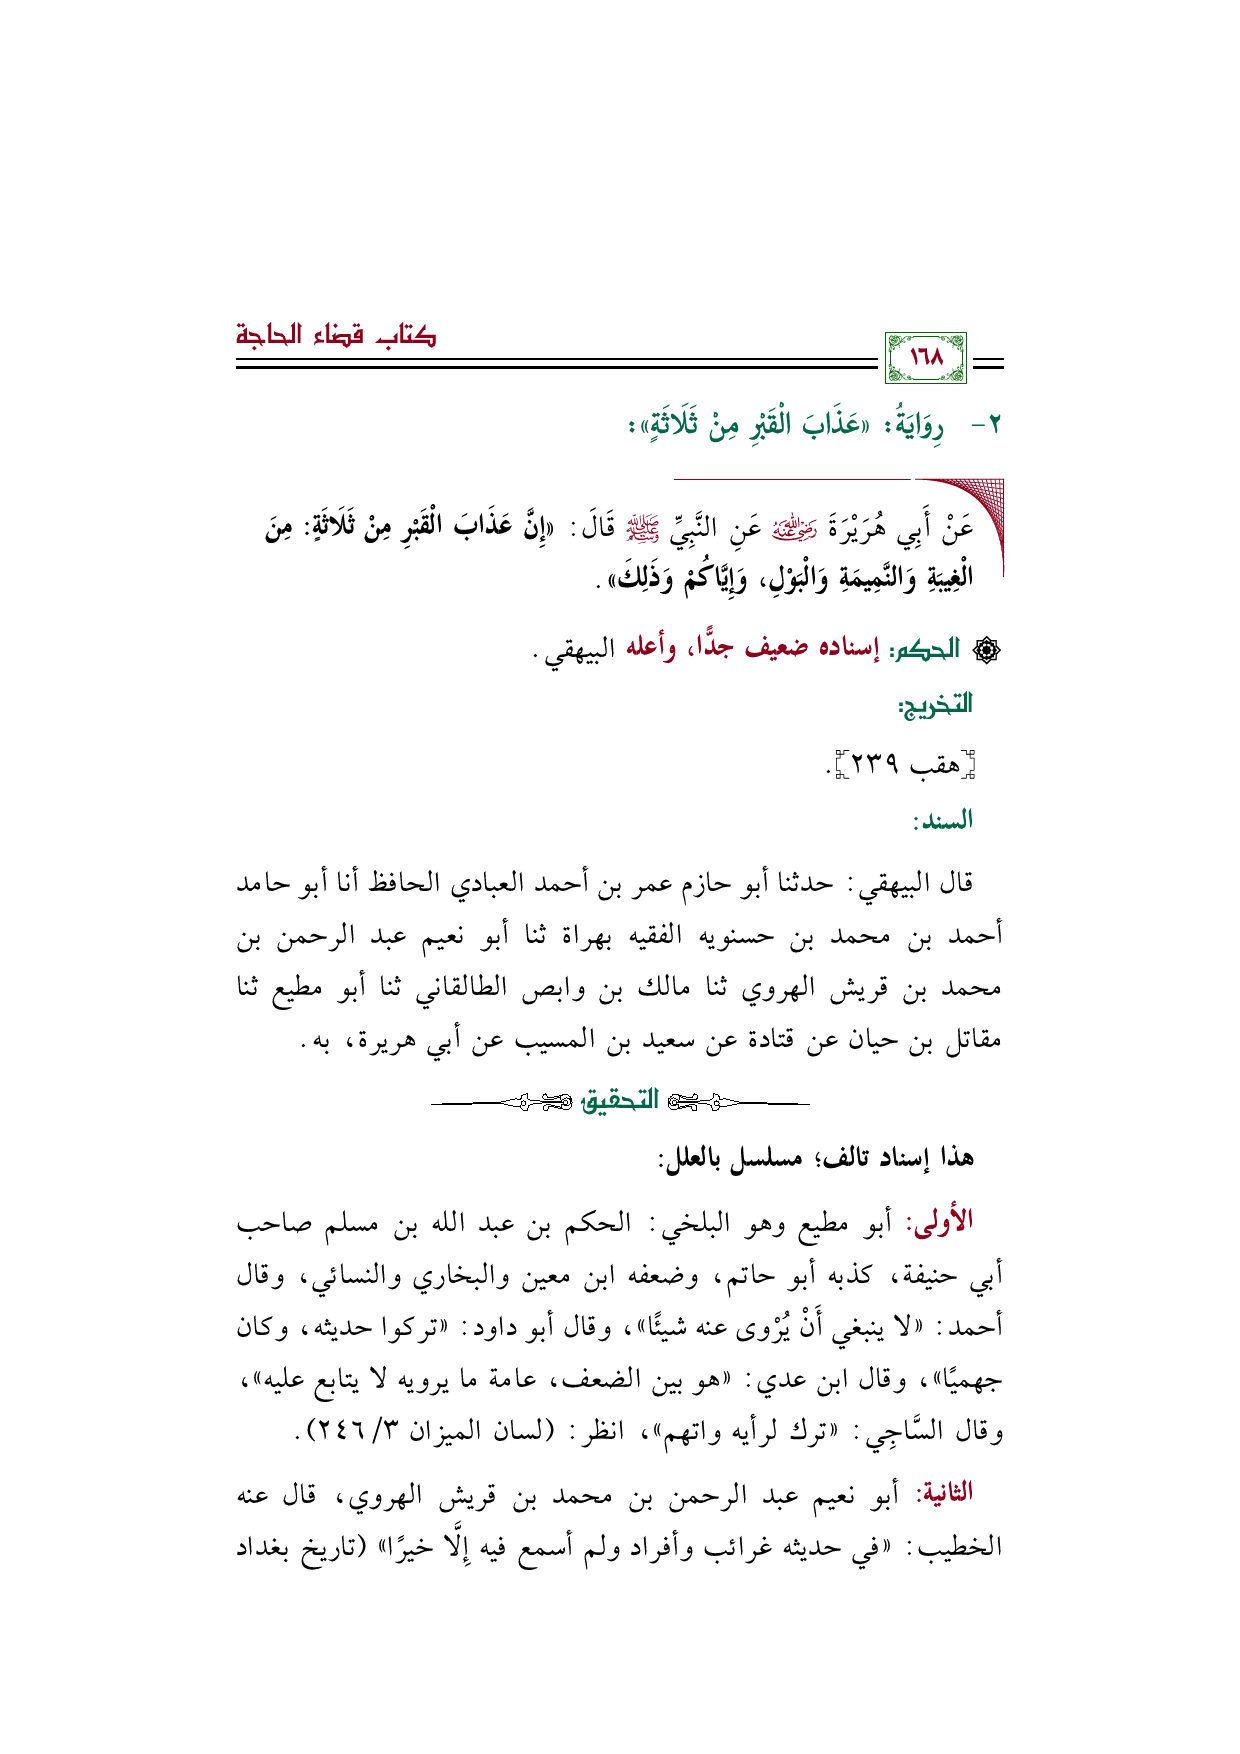 كتاب قضاء الحاجة
١٦٨
٢- رِوَايَةُ: «عَذَابَ الْقَبْرِ مِنْ ثَلَاثَةٍ»:
عَنْ أَبِي هُرَيْرَةَ رضي الله عنه عَنِ النَّبِيِّ ﷺ قَالَ: «إِنَّ عَذَابَ الْقَبْرِ مِنْ ثَلَاثَةٍ: مِنَ
الْغِيبَةِ وَالنَّمِيمَةِ وَالْبَوْلِ، وَإِيَّاكُمْ وَذَلِكَ».
الحكم: إسناده ضعيف جدًّا، وأعله البيهقي.
التخريج:
[هقب ٢٣٩].
السند:
قال البيهقي: حدثنا أبو حازم عمر بن أحمد العبادي الحافظ أنا أبو حامد
أحمد بن محمد بن حسنويه الفقيه بهراة ثنا أبو نعيم عبد الرحمن بن
محمد بن قريش الهروي ثنا مالك بن وابص الطالقاني ثنا أبو مطيع ثنا
مقاتل بن حيان عن قتادة عن سعيد بن المسيب عن أبي هريرة، به.
التحقيق
هذا إسناد تالف؛ مسلسل بالعلل:
الأولى: أبو مطيع وهو البلخي: الحكم بن عبد الله بن مسلم صاحب
أبي حنيفة، كذبه أبو حاتم، وضعفه ابن معين والبخاري والنسائي، وقال
أحمد: «لا ينبغي أَنْ يُرْوى عنه شيئًا»، وقال أبو داود: «تركوا حديثه، وكان
جهميًا»، وقال ابن عدي: «هو بين الضعف، عامة ما يرويه لا يتابع عليه»،
وقال السَّاجِي: «ترك لرأيه واتهم»، انظر: (لسان الميزان ٣/ ٢٤٦).
الثانية: أبو نعيم عبد الرحمن بن محمد بن قريش الهروي، قال عنه
الخطيب: «في حديثه غرائب وأفراد ولم أسمع فيه إِلَّا خيرًا» (تاريخ بغداد